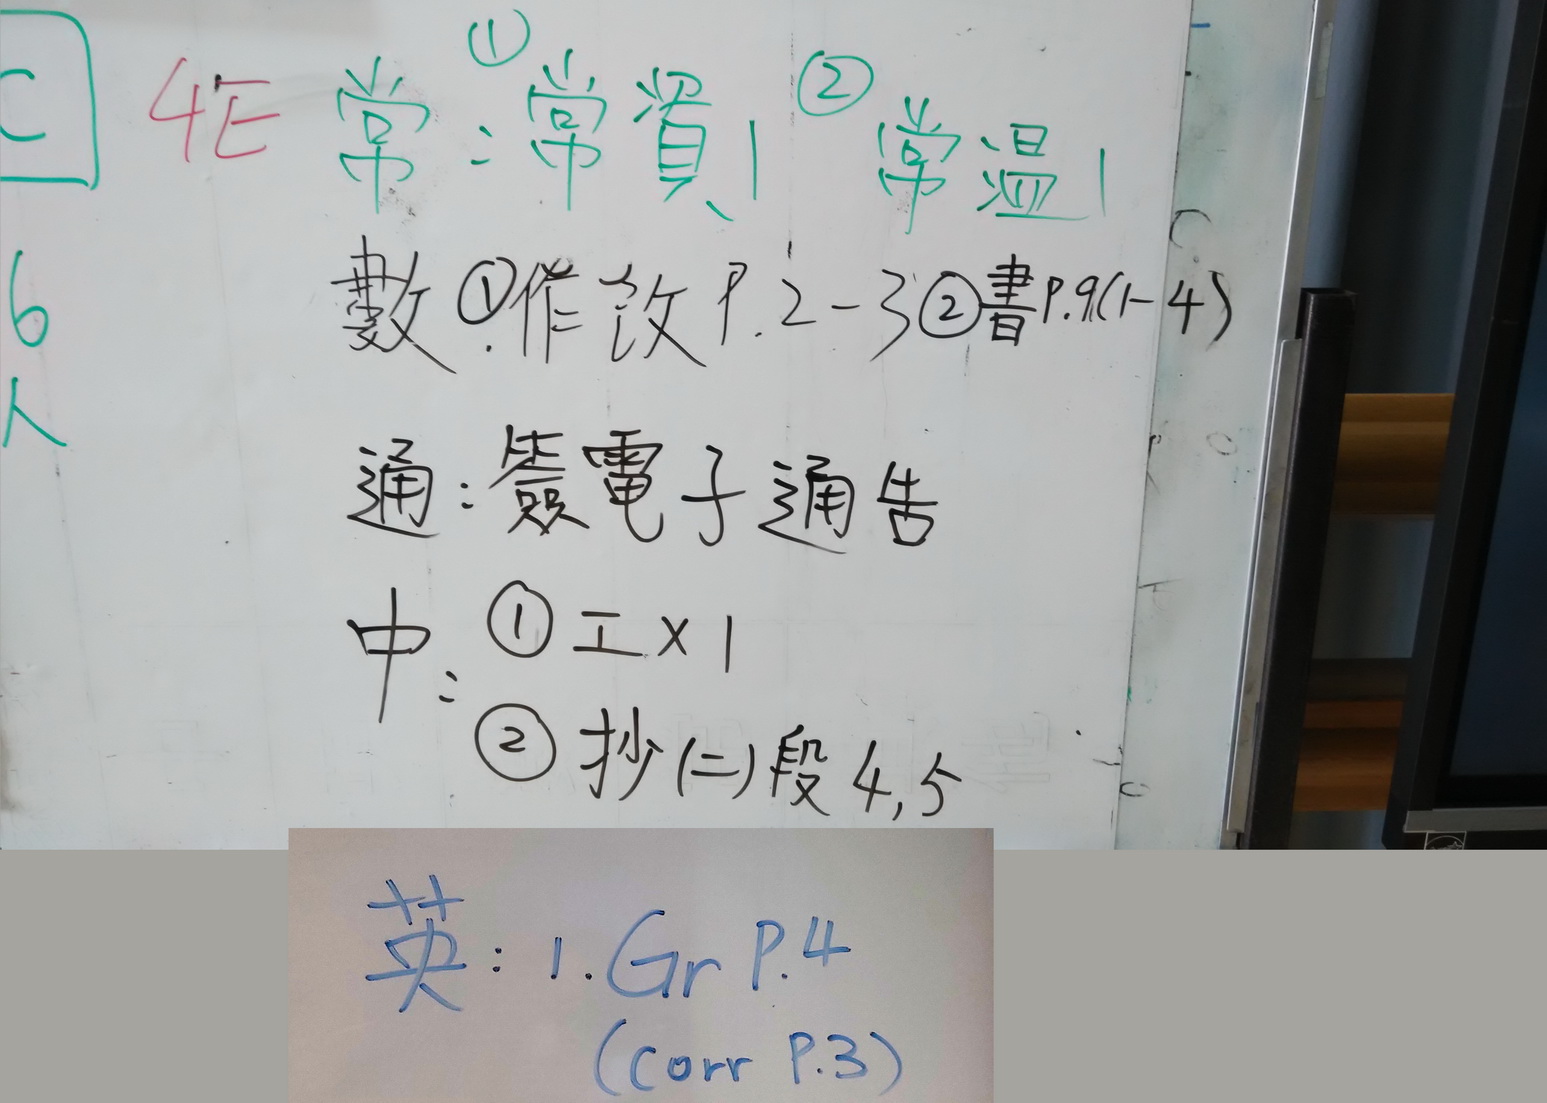 C
6
人
4E 常：①常資1 ②常溫1
數①作改P.2-3②書P.9(1-4)
通：簽電子通告
中：①工×1
②抄(二)段4,5
英：1.Gr P.4
(corr P.3)